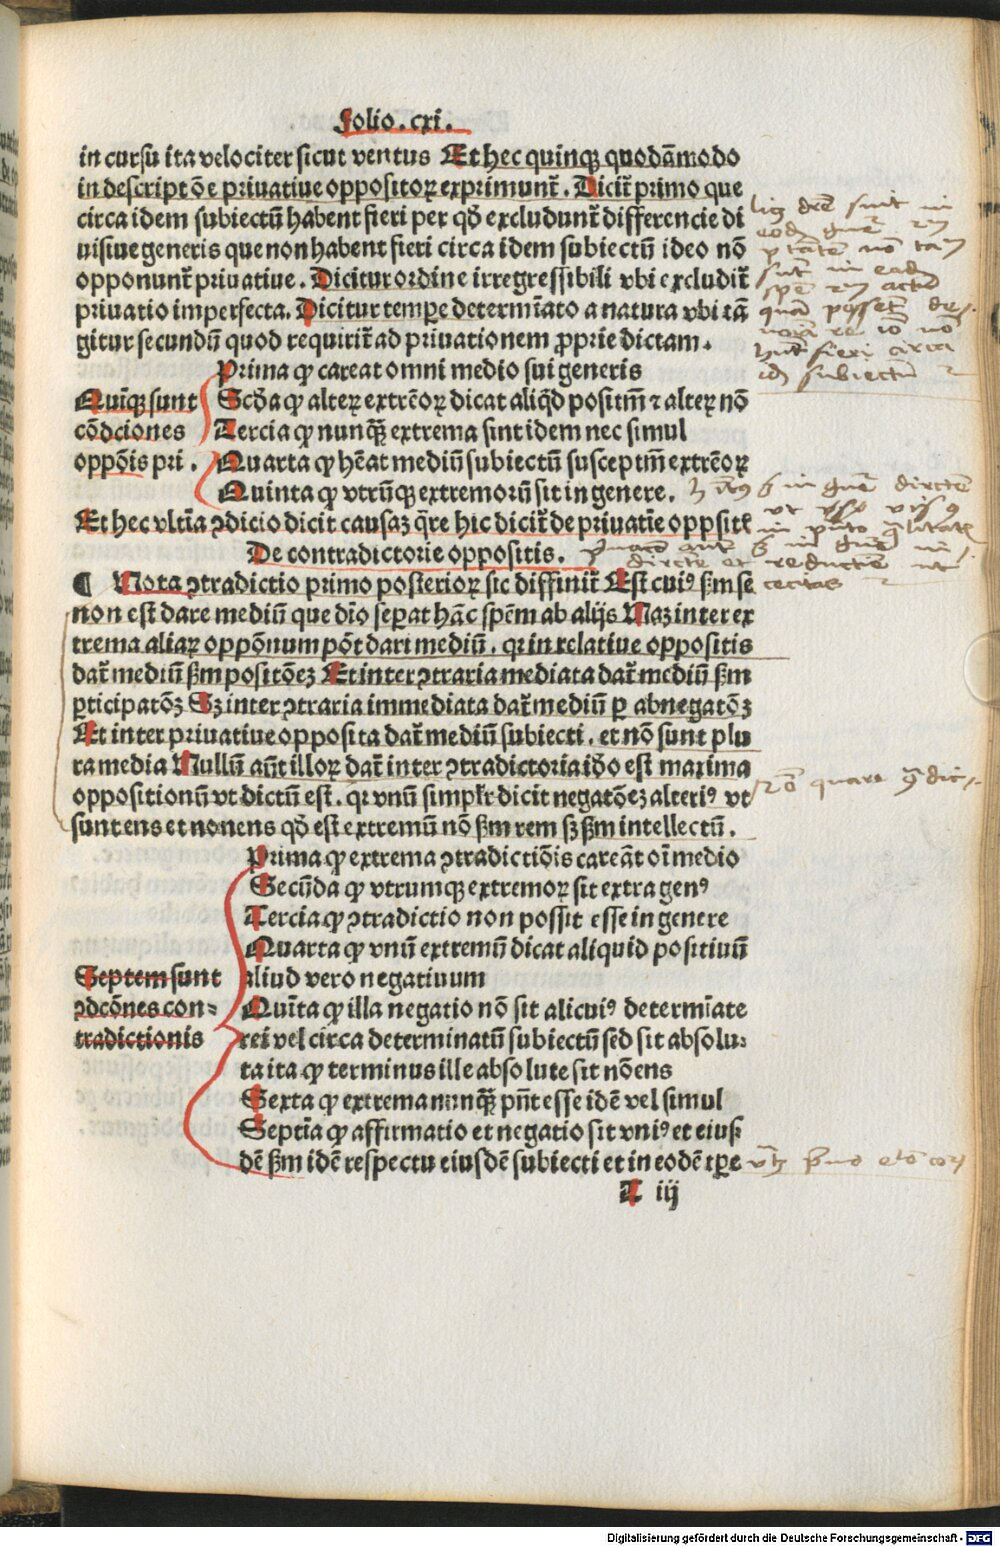 Folio.cxi.
in cursu ita velociter sicut ventus Et hec quinqꝫ quodāmodo
in descriptōe priuatiue oppositoꝝ exprimunt᷑. Dicit᷑ primo que
circa idem subiectū habent fieri per qḋ excludunt᷑ differencie di
uisiue generis que non habent fieri circa idem subiectū ideo nō
opponunt᷑ priuatiue. Dicitur ordine irregressibili vbi excludit᷑
priuatio imperfecta. Dicitur tempe determīato a natura vbi tā
gitur secundū quod requirit᷑ ad priuationem ꝓprie dictam.
Prima ꝙ careat omni medio sui generis
Quīqꝫ sunt Scḋa ꝙ alteꝝ extrēoꝝ dicat aliqḋ positiū ⁊ alteꝝ nō
cōdciones Tercia ꝙ nunqꝫ̄ extrema sint idem nec simul
oppōis pri. Quarta ꝙ hēat mediū subiectū susceptiū extrēoꝝ
Quinta ꝙ vtrūqꝫ extremorū sit in genere.
Et hec vltīa ↄdicio dicit causaꝫ q̄re hic dicit᷑ de priuatīe oppsitꝭ
De contradictorie oppositis.
¶ Nota ↄtradictio primo posterioꝝ sic diffinit᷑ Est cuiꝰ ẜm se
non est dare mediū que dīo seꝑat hāc spēm ab alijs Naꝫ inter ex
trema aliaꝝ oppōnum pōt dari mediū. qꝛ in relatiue oppositis
dat᷑ mediū ẜm positōeꝫ Et inter ↄtraria mediata dat᷑ mediū ẜm
ꝑticipatōꝫ Sꝫ inter ↄtraria immediata dat᷑ mediū ꝑ abnegatōꝫ
Et inter priuatiue opposita dat᷑ mediū subiecti. et nō sunt plu
ra media Nullū aūt illoꝝ dat᷑ inter ↄtradictoria iḋo est maxima
oppositionū vt dictū est. qꝛ vnū simplꝛ dicit negatōeꝫ alteriꝰ vt
sunt ens et nonens qḋ est extremū nō ẜm rem sꝫ ẜm intellectū.
Prima ꝙ extrema ↄtradictiōis careāt oī medio
Secūda ꝙ vtrumqꝫ extremoꝝ sit extra genꝰ
Tercia ꝙ ↄtradictio non possit esse in genere
Quarta ꝙ vnū extremū dicat aliquid positiuū
Septem sunt aliud vero negatiuum
ↄdcōnes con⸗ Quīta ꝙ illa negatio nō sit alicuiꝰ determīate
tradictionis rei vel circa determinatū subiectū sed sit absolu⸗
ta ita ꝙ terminus ille absolute sit nōens
Sexta ꝙ extrema nunqꝫ̄ pn̄t esse idē vel simul
Septīa ꝙ affirmatio et negatio sit vniꝰ et eius⸗
dē ẜm idē respectu eiusdē subiecti et in eodē tꝑe
A iij
Digitalisierung gefördert durch die Deutsche Forschungsgemeinschaft - DFG